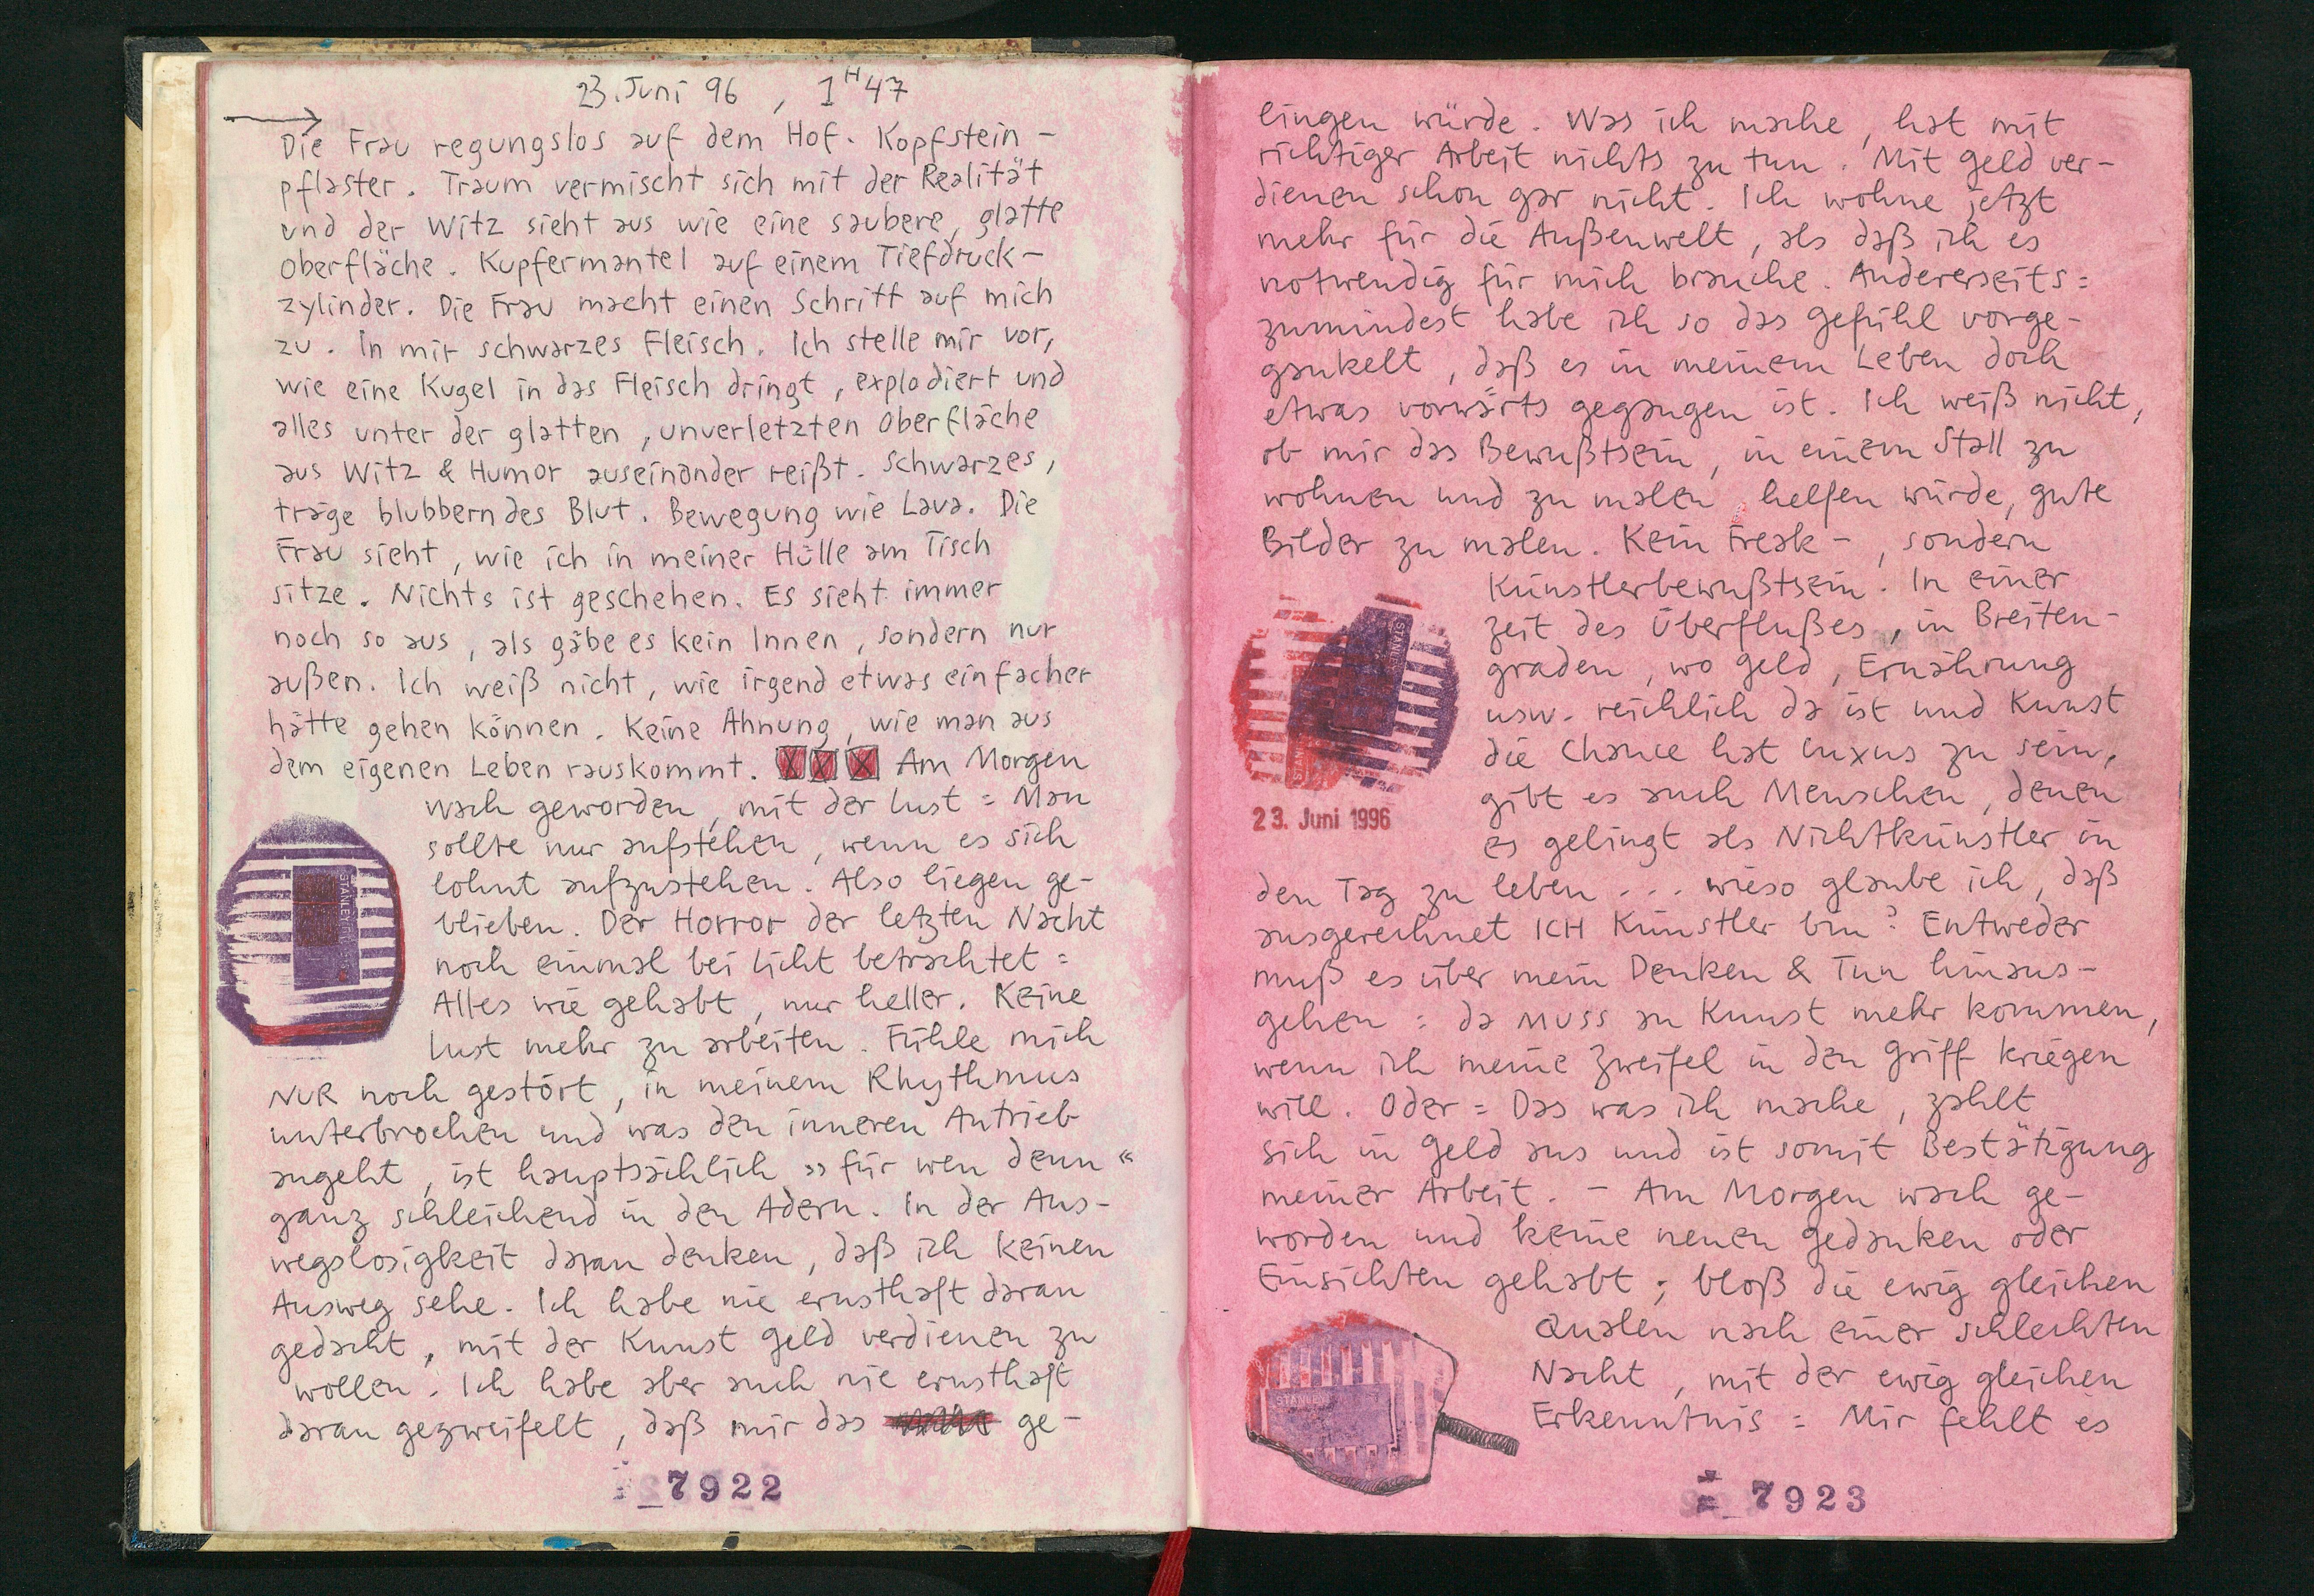 23. Juni 96, 1H47
Die Frau regungslos auf dem Hof. Kopfstein-
pflaster. Traum vermischt sich mit der Realität
und der Witz sieht aus wie eine saubere, glatte
Oberfläche. Kupfermantel auf einem Tiefdruck-
zylinder. Die Frau macht einen Schritt auf mich
zu. In mir schwarzes Fleisch. Ich stelle mir vor,
wie eine Kugel in das Fleisch dringt, explodiert und
alles unter der glatten, unverletzten Oberfläche
aus Witz & Humor auseinander reißt. Schwarzes,
träge blubberndes Blut. Bewegung wie Lava. Die
Frau sieht, wie ich in meiner Hülle am Tisch
sitze. Nichts ist geschehen. Es sieht immer
noch so aus, als gäbe es kein Innen, sondern nur
außen. Ich weiß nicht, wie irgend etwas einfacher
hätte gehen können. Keine Ahnung, wie man aus
dem eigenen Leben rauskommt. XXX Am Morgen
wach geworden, mit der Lust = Man
sollte nur aufstehen, wenn es sich
lohnt aufzustehen. Also liegen ge-
blieben. Der Horror der letzten Nacht
noch einmal bei Licht betrachtet =
Alles wie gehabt, nur heller. Keine
Lust mehr zu arbeiten. Fühle mich
NUR noch gestört, in meinem Rhythmus
unterbrochen und was den inneren Antrieb
angeht, ist hauptsächlich »für wen denn«
ganz schleichend in den Adern. In der Aus-
wegslosigkeit daran denken, daß ich keinen
Ausweg sehe. Ich habe nie ernsthaft daran
gedacht, mit der Kunst Geld verdienen zu
wollen. Ich habe aber auch nie ernsthaft
daran gezweifelt, daß mir das ge-
STANLEY
7922
lingen würde. Was ich mache, hat mit
richtiger Arbeit nichts zu tun. Mit Geld ver-
dienen schon gar nicht. Ich wohne jetzt
mehr für die Außenwelt, als daß ich es
notwendig für mich brauche. Andererseits =
zumindest habe ich so das Gefühl vorge-
gaukelt, daß es in meinem Leben doch
etwas vorwärts gegangen ist. Ich weiß nicht,
ob mir das Bewußtsein, in einem Stall zu
wohnen und zu malen, helfen würde, gute
Bilder zu malen. Kein Freak-, sondern
Künstlerbewußtsein. In einer
Zeit des Überflußes, in Breiten-
graden, wo Geld, Ernährung
usw. reichlich da ist und Kunst
die Chance hat Luxus zu sein,
gibt es auch Menschen, denen
es gelingt als Nichtkünstler in
den Tag zu leben ... wieso glaube ich, daß
ausgerechnet ICH Künstler bin? Entweder
muß es über mein Denken & Tun hinaus-
gehen = da MUSS an Kunst mehr kommen,
wenn ich meine Zweifel in den Griff kriegen
will. Oder = Das was ich mache, zahlt
sich in Geld aus und ist somit Bestätigung
meiner Arbeit. - Am Morgen wach ge-
worden und keine neuen Gedanken oder
Einsichten gehabt; bloß die ewig gleichen
Qualen nach einer schlechten
Nacht, mit der ewig gleichen
Erkenntnis = Mir fehlt es
STANLEY
STANLEY
23. Juni 1996
STANLEY
7923